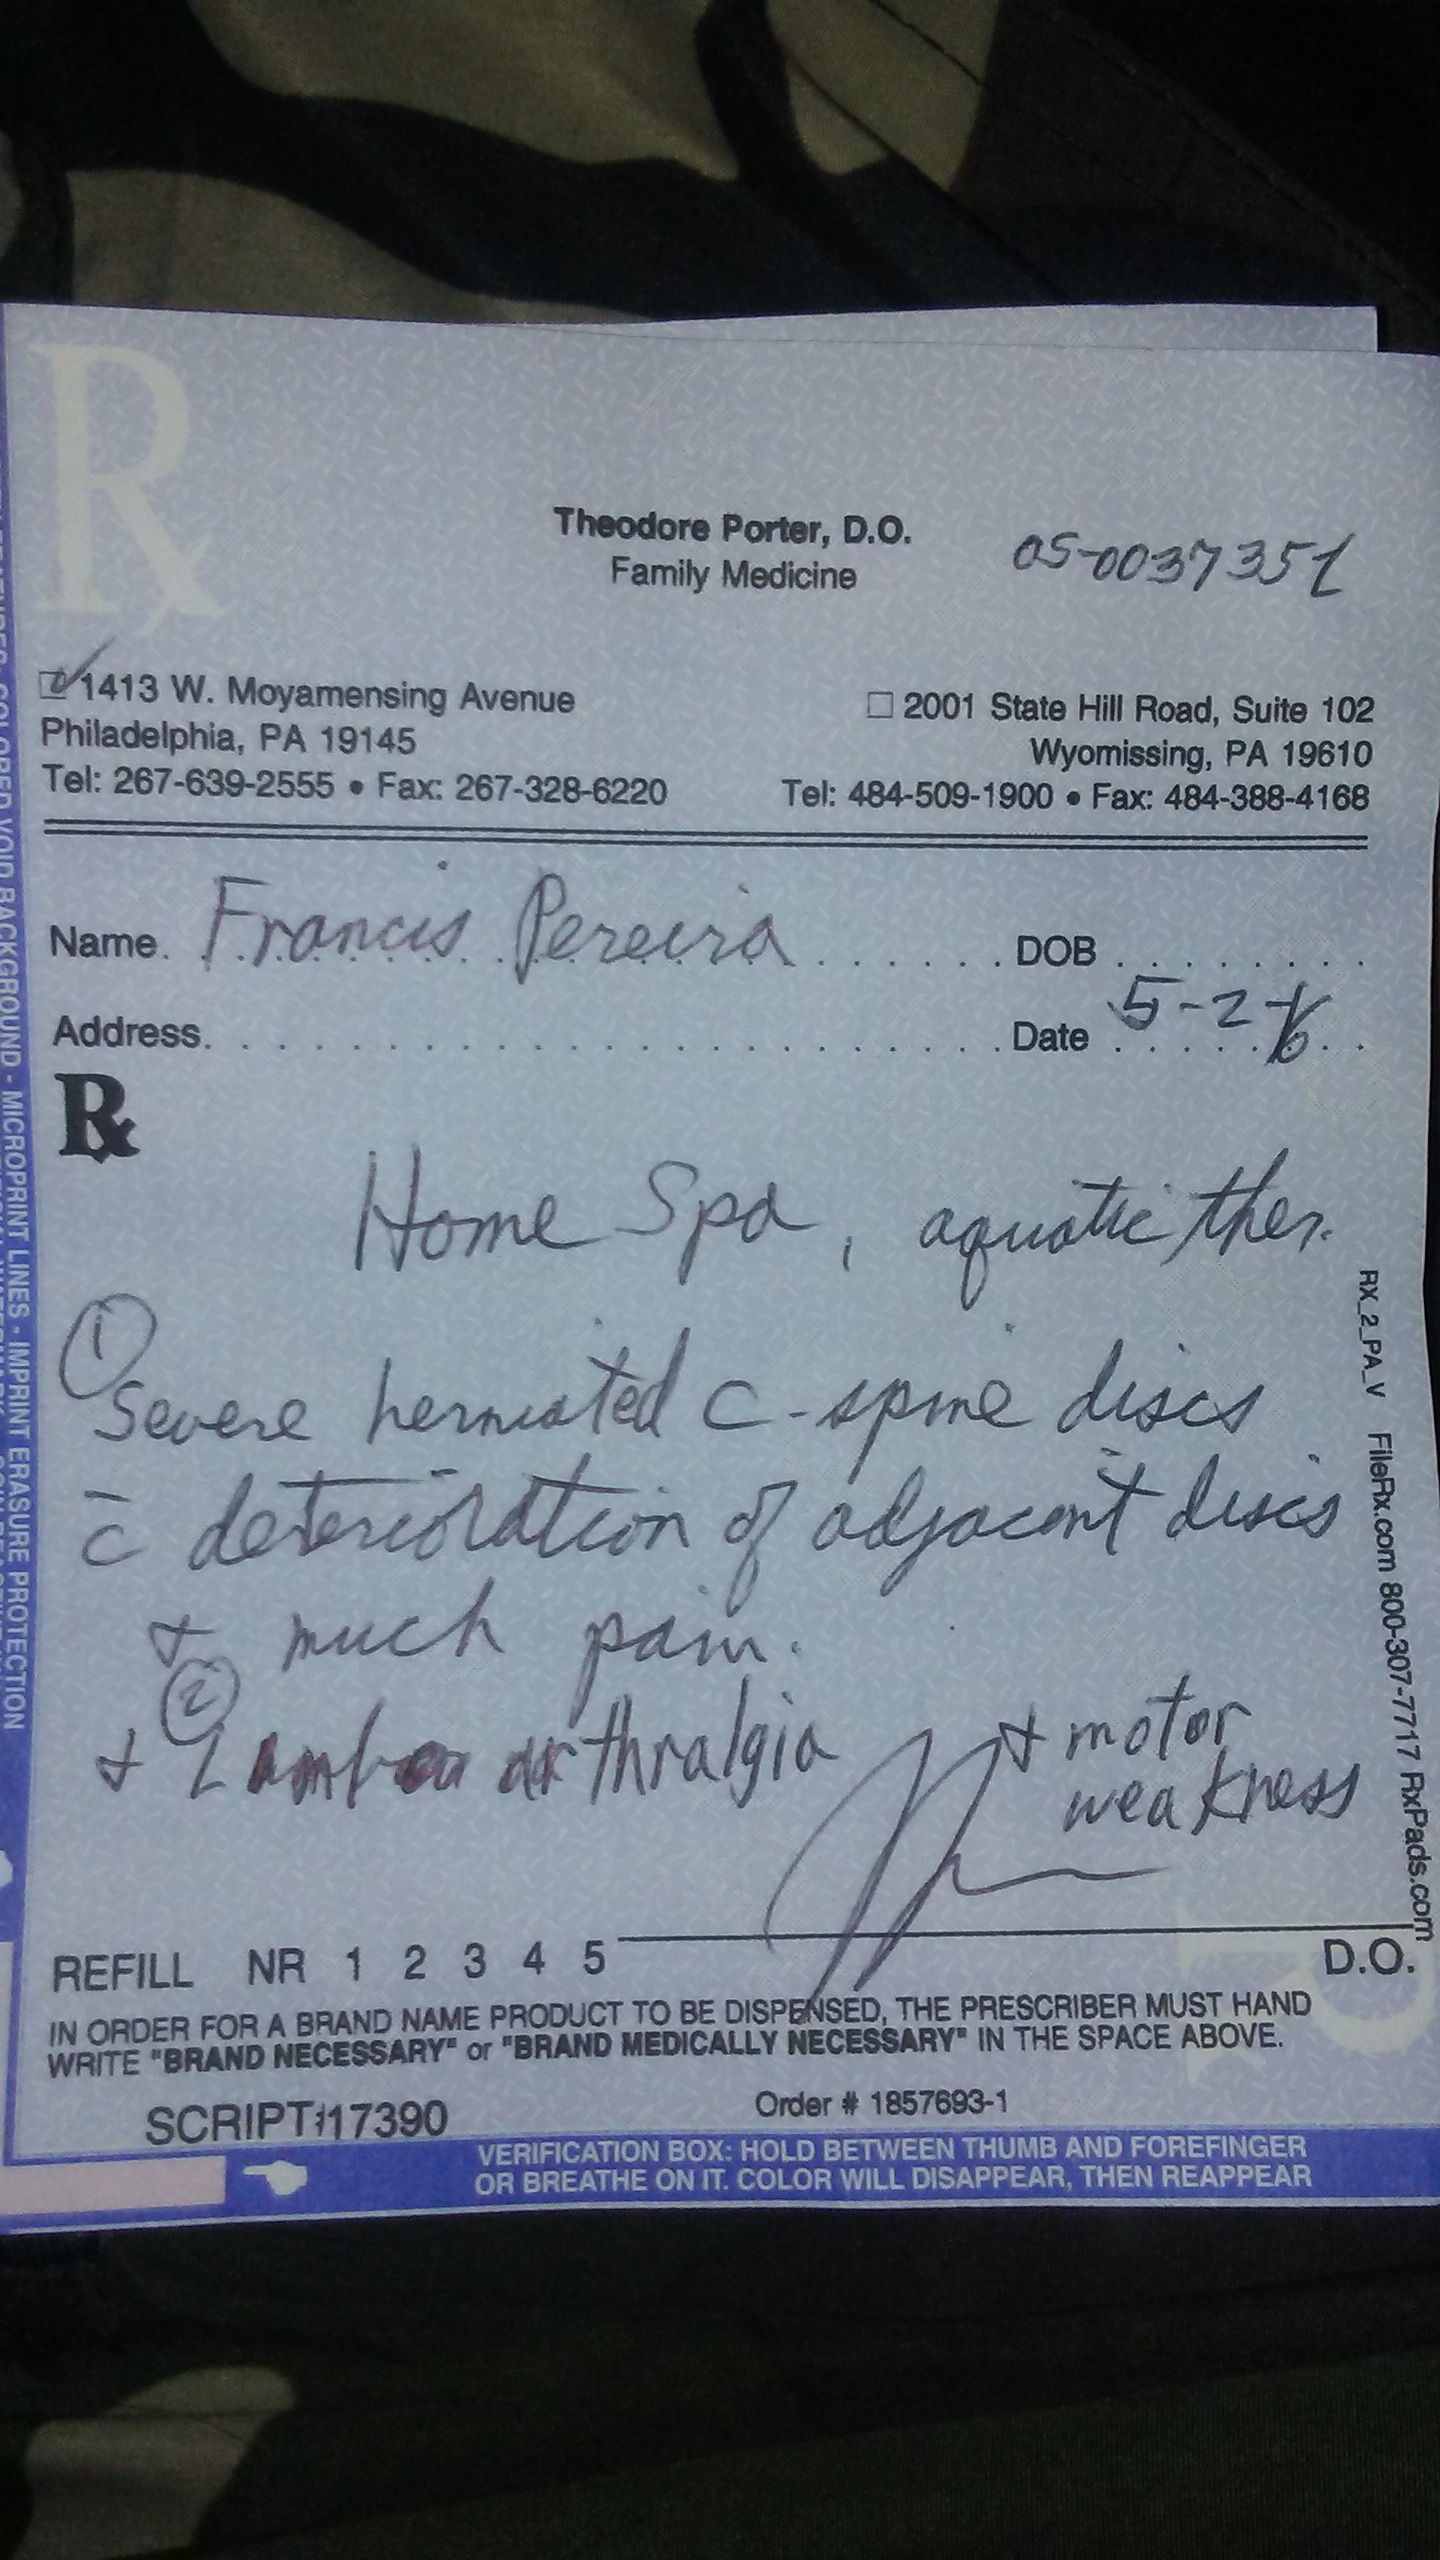 Theodore Porter, D.O.
Family Medicine
OS-003735L
1413 W. Moyamensing Avenue
Philadelphia, PA 19145
Tel: 267-639-2555 • Fax: 267-328-6220
2001 State Hill Road, Suite 102
Wyomissing, PA 19610
Tel: 484-509-1900 • Fax: 484-388-4168
Name Francis Pereira DOB
Address Date 5-2
Rx
Home Spa, aquatic ther.
① Severe herniated c-spine discs
c̄ deterioration of adjacent discs
+ much pain.
+ ② arthralgia + motor
weakness
REFILL NR 1 2 3 4 5
D.O.
IN ORDER FOR A BRAND NAME PRODUCT TO BE DISPENSED, THE PRESCRIBER MUST HAND
WRITE "BRAND NECESSARY" or "BRAND MEDICALLY NECESSARY" IN THE SPACE ABOVE.
SCRIPT#17390
Order # 1857693-1
VERIFICATION BOX: HOLD BETWEEN THUMB AND FOREFINGER
OR BREATHE ON IT. COLOR WILL DISAPPEAR, THEN REAPPEAR
RX_2_PA_V FileRx.com 800-307-7717 RxPads.com
COLORED VOID BACKGROUND - MICROPRINT LINES - IMPRINT ERASURE PROTECTION